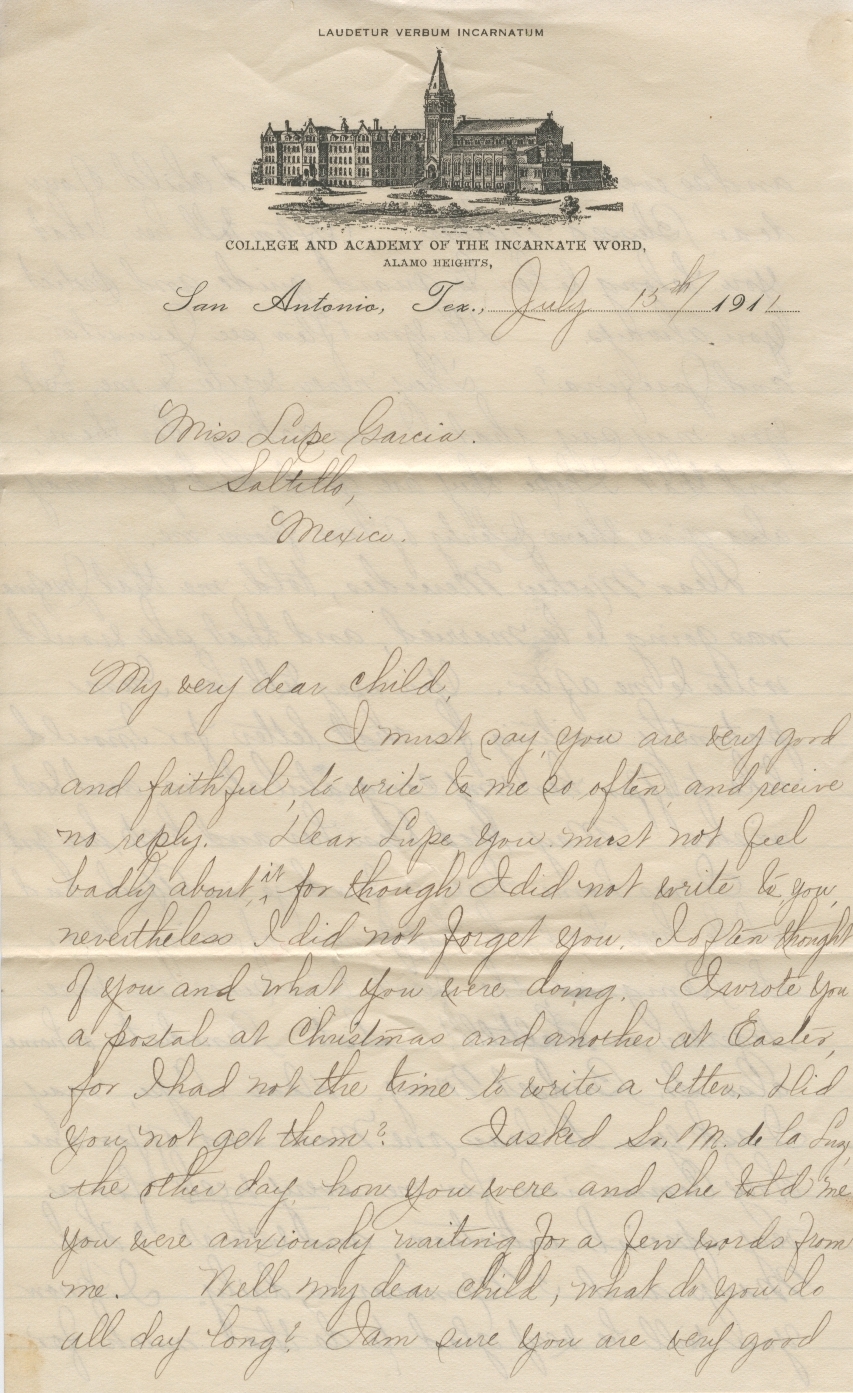 LAUDETUR VERBUM INCARNATUM
COLLEGE AND ACADEMY OF THE INCARNATE WORD,
ALAMO HEIGHTS,
San Antonio, Tex., July 15th/ 1911
Miss Lupe Garcia.
Saltillo,
Mexico.
My very dear child,
I must say, you are very good
and faithful, to write to me so often, and receive
no reply. Dear Lupe you must not feel
badly about it, for though I did not write to you,
nevertheless I did not forget you. I often thought
of you and what you were doing. I wrote you
a postal at Christmas and another at Easter,
for I had not the time to write a letter. Did
you not get them? I asked Sr. M. de la Luz,
the other day, how you were and she told me
you were anxiously waiting for a few words from
me. Well my dear child, what do you do
all day long? I am sure you are very good